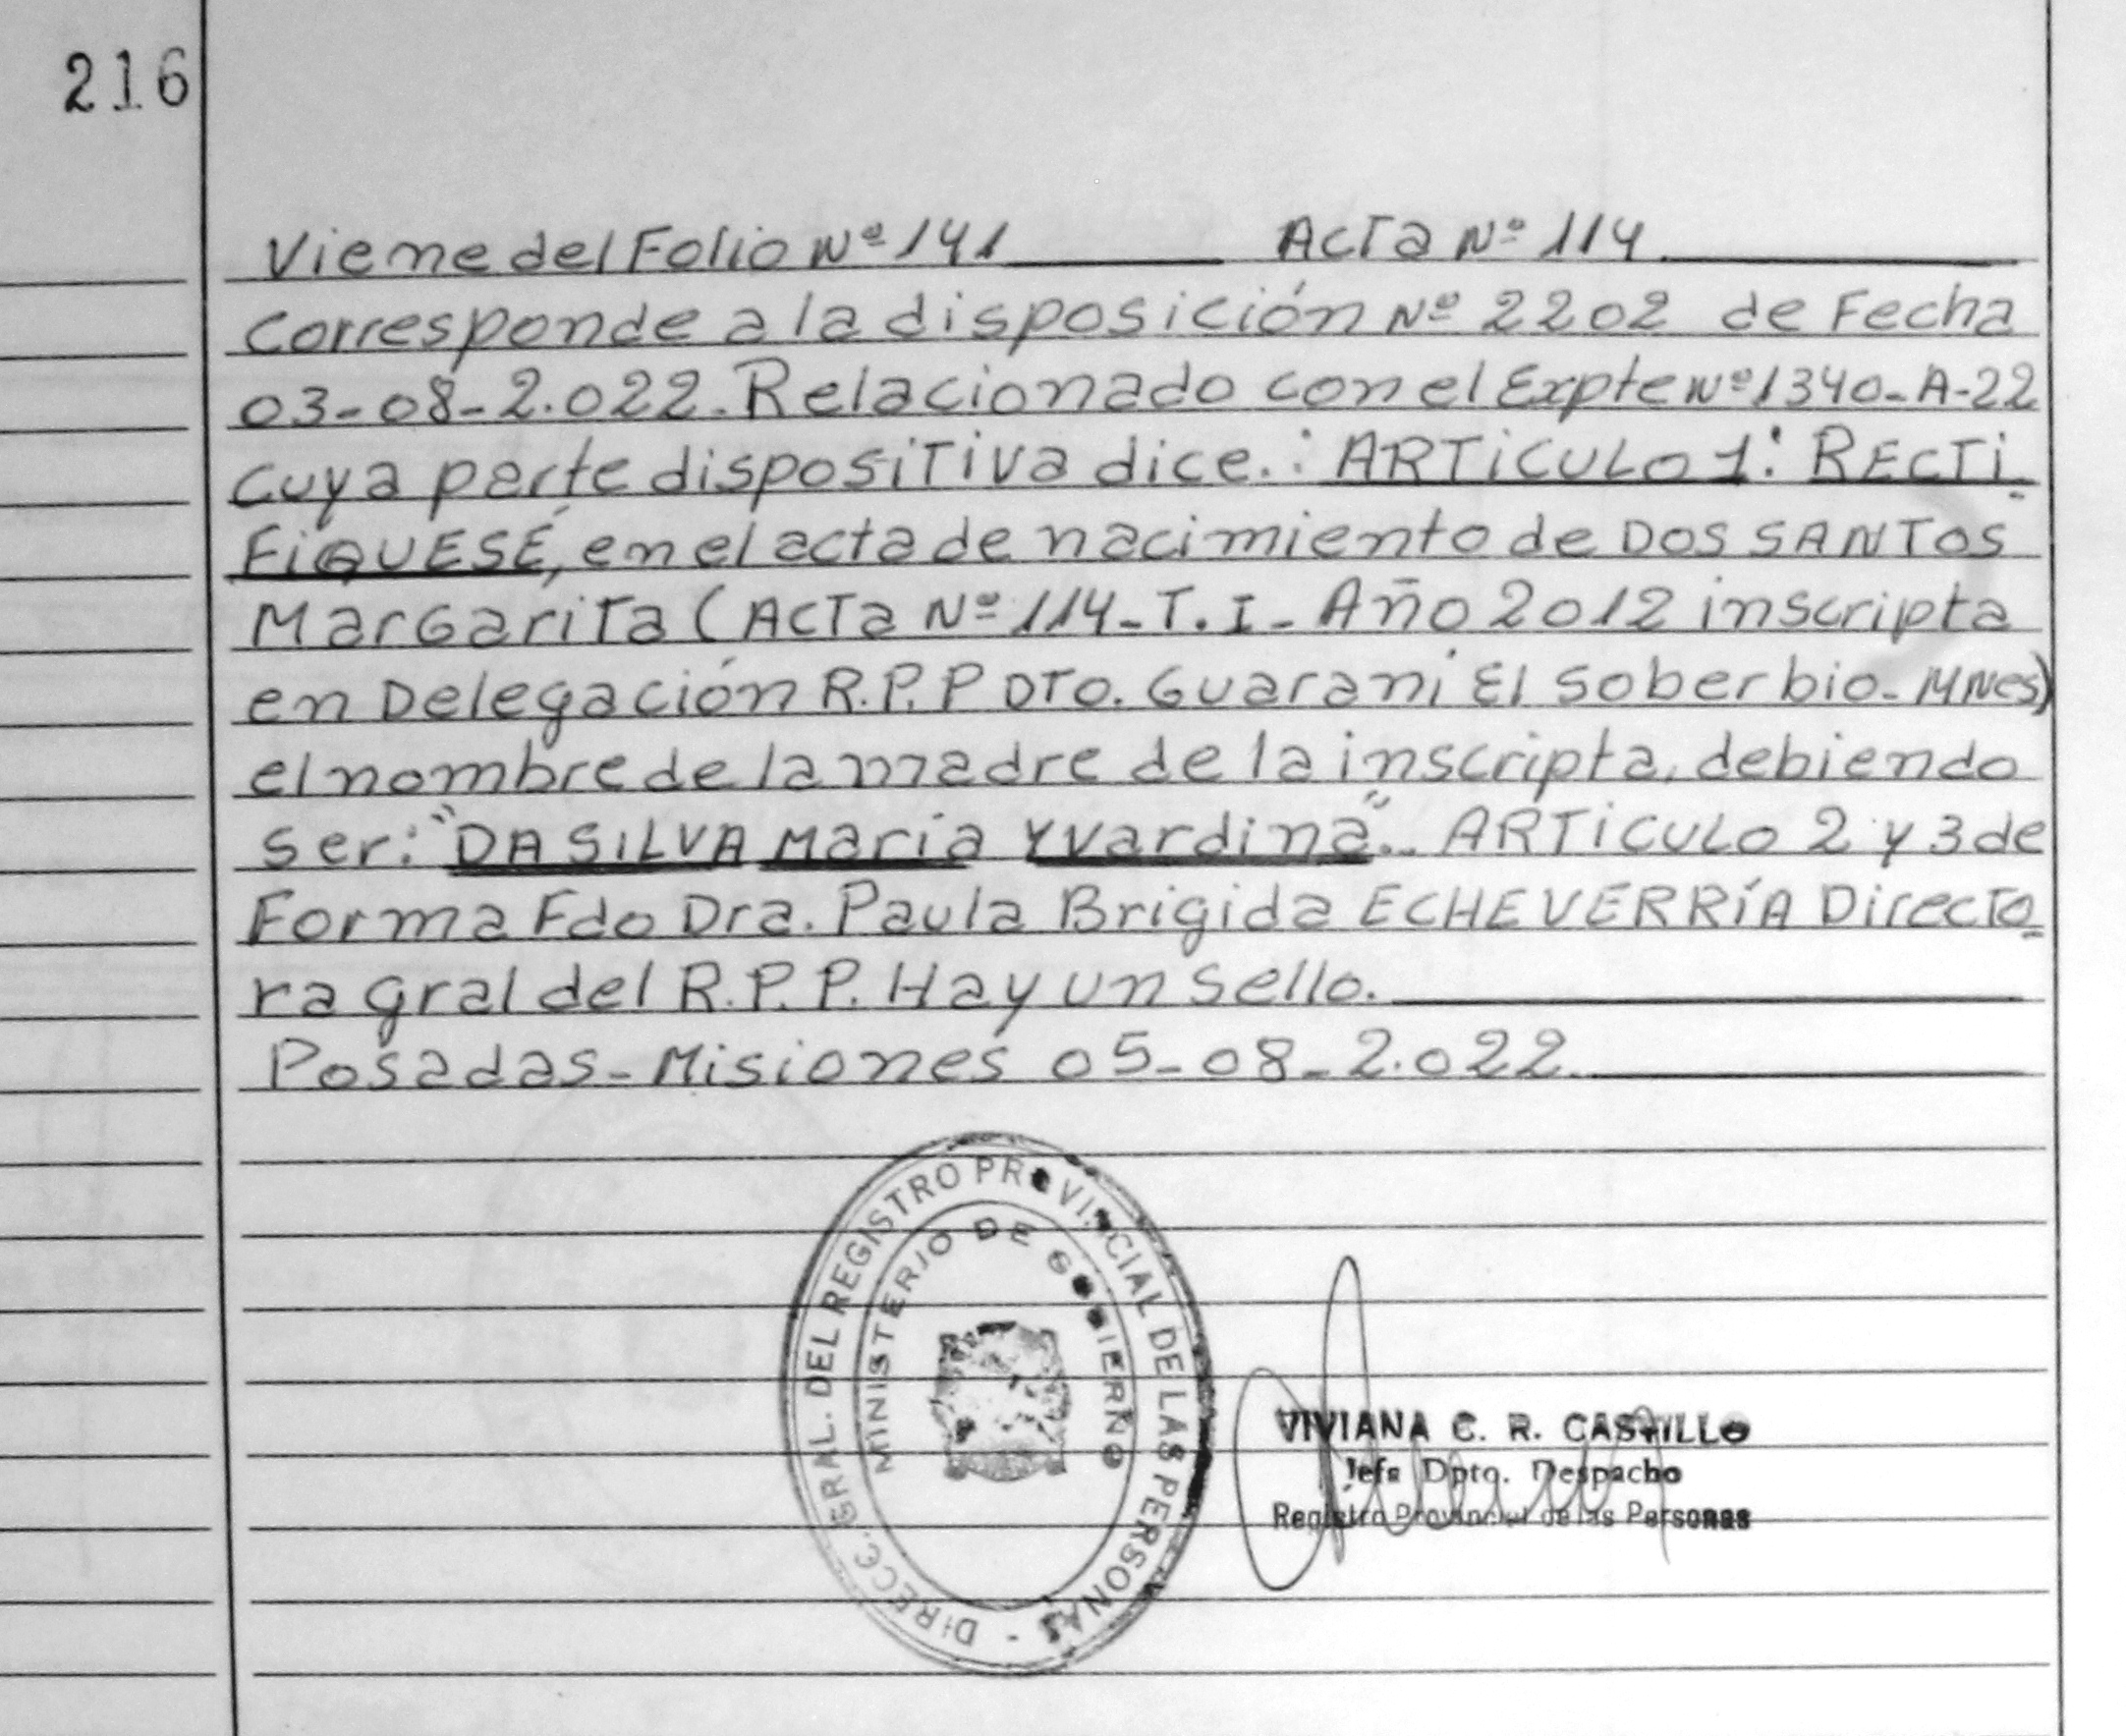 216
Viene del Folio Nº 141 Acta Nº 114
Corresponde a la disposición Nº 2202 de Fecha
03-08-2.022. Relacionado con el Expte Nº 1340-A-22
cuya parte dispositiva dice.: ARTiCULO 1: RECTi-
FiQUESÉ, en el acta de nacimiento de DOS SANTOS
Margarita (Acta Nº 114-T.I- Año 2012 inscripta
en Delegación R.P.P DTO. Guaraní El Soberbio- MNes)
el nombre de la madre de la inscripta, debiendo
ser: "DA SILVA Maria Yvardina".. ARTiCULO 2 y 3 de
Forma Fdo Dra. Paula Brigida ECHEVERRÍA Directo-
ra gral del R.P.P. Hay un sello.
Posadas-Misiones 05-08-2.022.
DIRECC. GRAL. DEL REGISTRO PROVINCIAL DE LAS PERSONAS -
MINISTERIO DE GOBIERNO
VIVIANA C. R. CASTILLO
Jefa Dpto. Despacho
Registro Provincial de las Personas